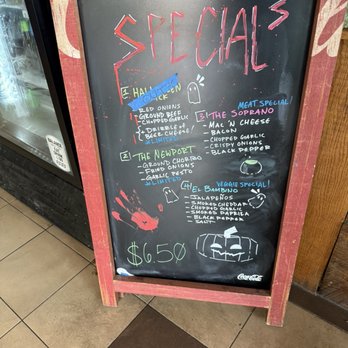 SPECIALS
1 HALLOWEEN
RED ONIONS
GROUND BEEF
CHOPPED GARLIC
DRIBBLE OF
BEER CHEESE!
#LIMITED
2 THE NEWPORT
GROUND CHORIZO
FRIED ONIONS
GARLIC PESTO
#LIMITED
MEAT SPECIAL!
3 THE SOPRANO
MAC 'N CHEESE
BACON
CHOPPED GARLIC
CRISPY ONIONS
BLACK PEPPER
VEGGIE SPECIAL!
4 EL BAMBINO
JALAPEÑOS
SMOKED CHEDDAR
CHOPPED GARLIC
SMOKED PAPRIKA
BLACK PEPPER
SALT
$6.50
Coca-Cola